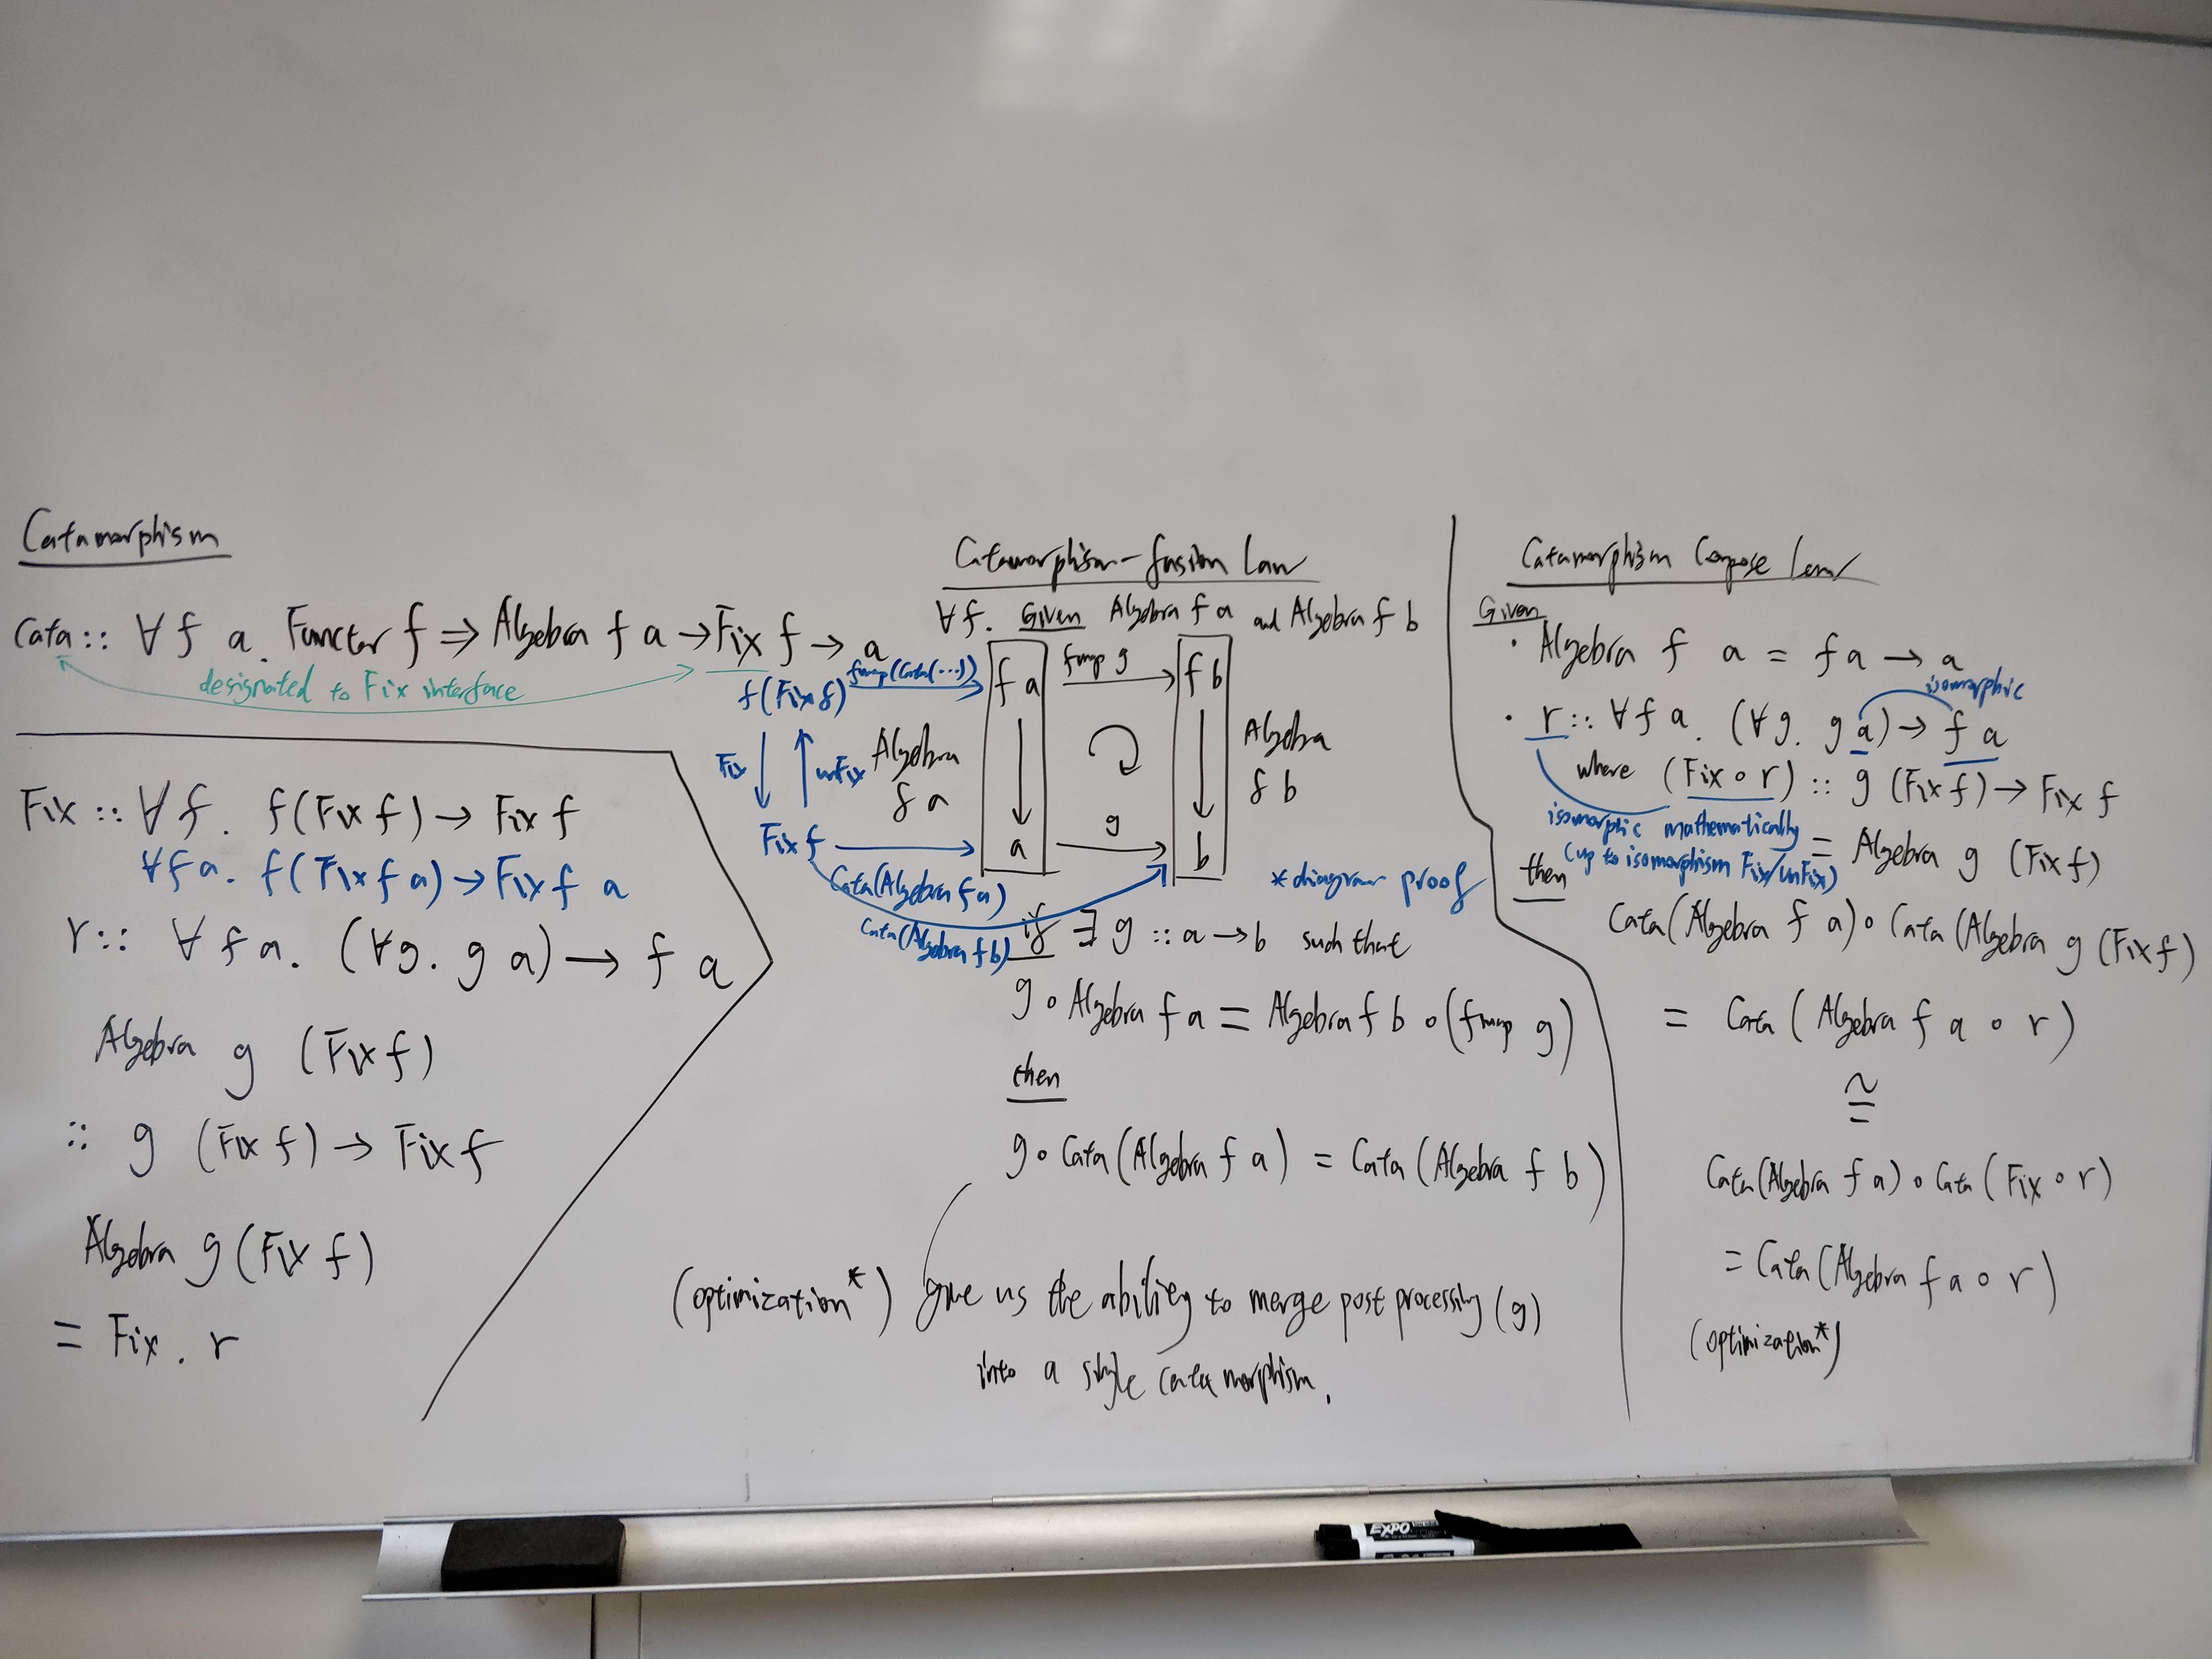 Catamorphism
Cata :: ∀ f a. Functor f ⇒ Algebra f a → Fix f → a
designated to Fix interface
Fix :: ∀ f. f (Fix f) → Fix f
∀ f a. f (Fix f a) → Fix f a
r :: ∀ f a. (∀ g. g a) → f a
Algebra g (Fix f)
:: g (Fix f) → Fix f
Algebra g (Fix f)
= Fix . r
Catamorphism-fusion Law
∀ f. Given Algebra f a and Algebra f b
f (Fix f) fmap (Cata (...)) f a fmap g f b
Fix unFix Algebra f a Algebra f b
Fix f a g b
Cata (Algebra f a)
Cata (Algebra f b)
* diagram proof
if ∃ g :: a → b such that
g ∘ Algebra f a = Algebra f b ∘ (fmap g)
then
g ∘ Cata (Algebra f a) = Cata (Algebra f b)
(optimization*) give us the ability to merge post processing (g)
into a single catamorphism.
Catamorphism Compose Law
Given
· Algebra f a = f a → a
isomorphic
· r :: ∀ f a. (∀ g. g a) → f a
where (Fix ∘ r) :: g (Fix f) → Fix f
isomorphic mathematically
(up to isomorphism Fix/unFix)
= Algebra g (Fix f)
then
Cata (Algebra f a) ∘ Cata (Algebra g (Fix f)
= Cata (Algebra f a ∘ r)
≅
Cata (Algebra f a) ∘ Cata (Fix ∘ r)
= Cata (Algebra f a ∘ r)
(optimization*)
EXPO